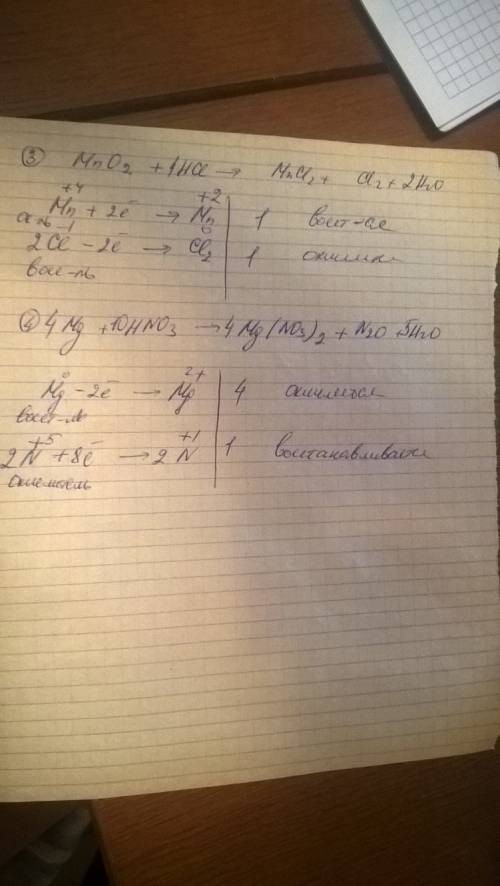 ③ MnO₂ + 4HCl → MnCl₂ + Cl₂ + 2H₂O
+4 +2
Mn + 2e̅ → Mn | 1 восст-ся
ок-ль -1 0
2Cl - 2e̅ → Cl₂ | 1 окисляется
восс-ль
④ 4Mg + 10HNO₃ → 4Mg(NO₃)₂ + N₂O + 5H₂O
0 2+
Mg - 2e̅ → Mg | 4 окисляется
восст-ль
+5 +1
2N + 8e̅ → 2N | 1 восстанавливается
окислитель